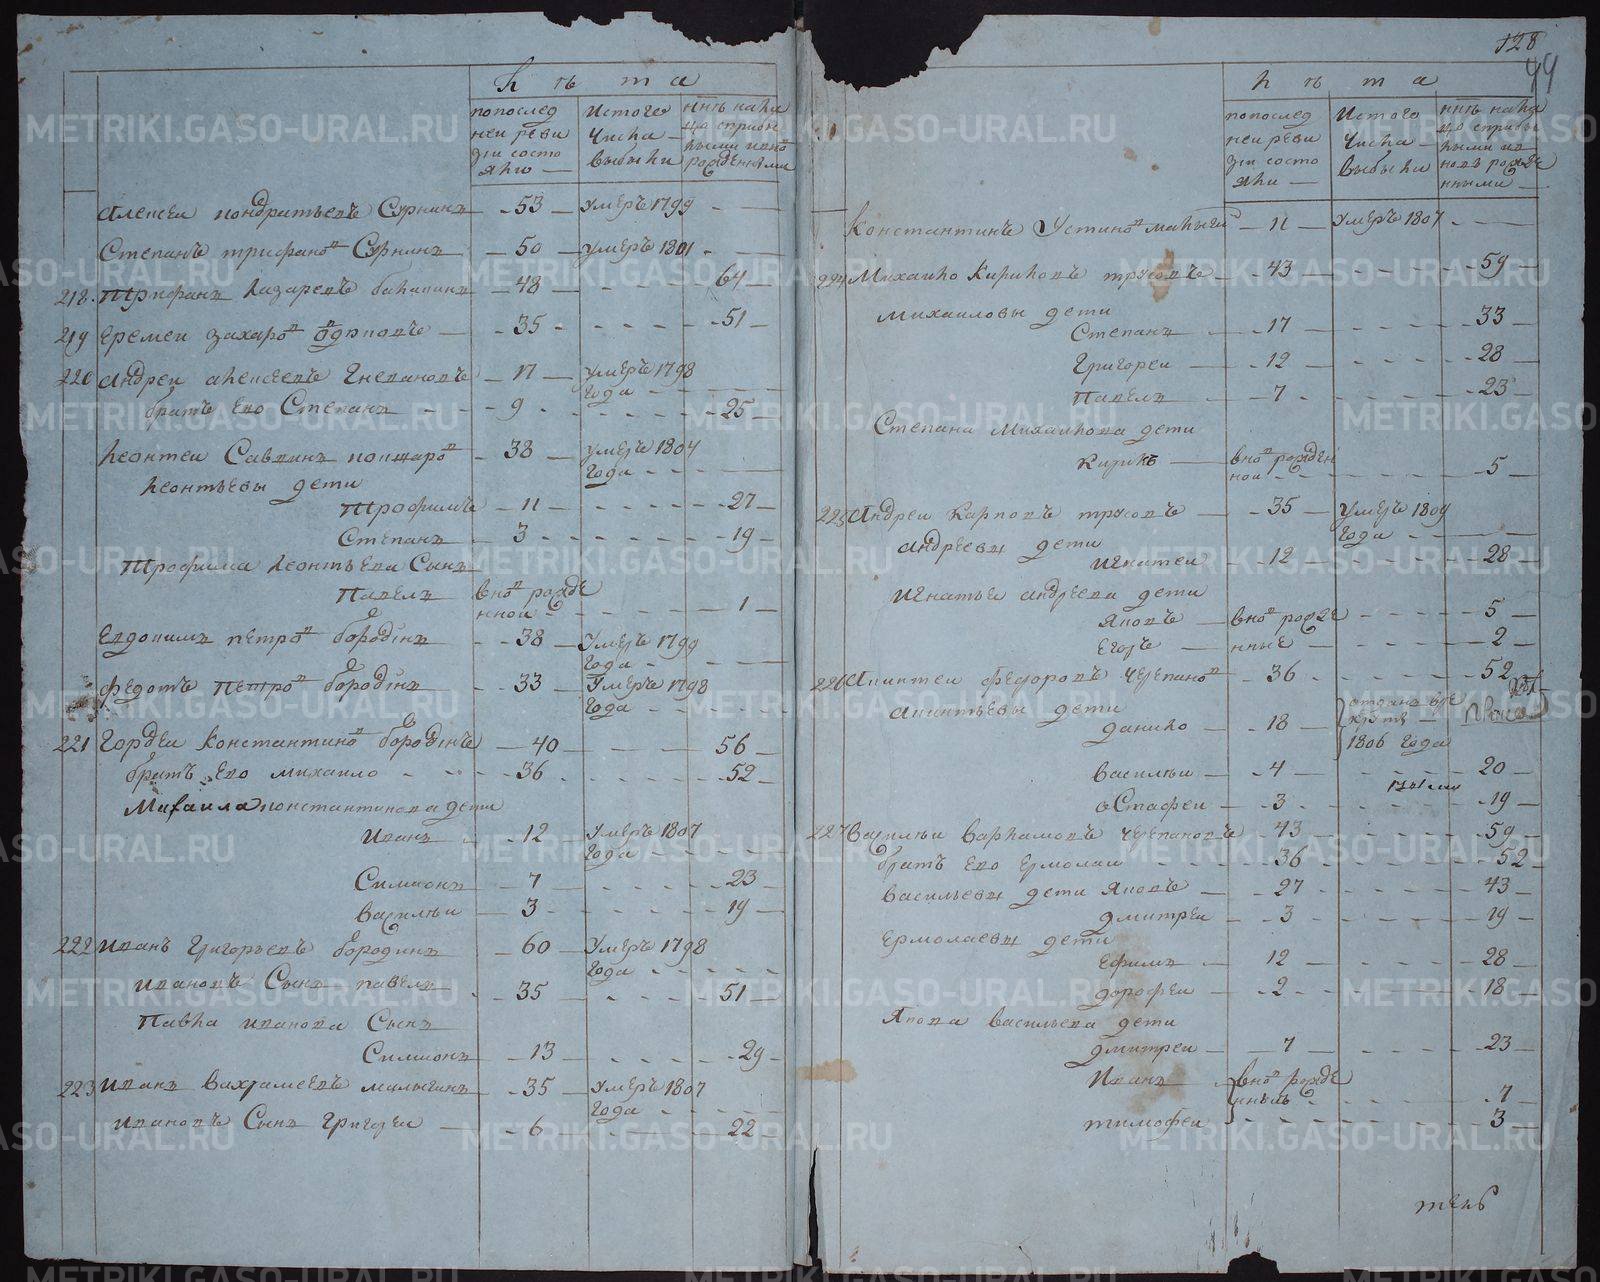 лѣта
попослед ней реви зіи состояло
ис того числа выбыло
ннѣ на лицо с прибылыми и вновь рожденными
Алексеи Кондратьевъ Сурнинъ 53 умеръ 1799
Степанъ трифоновъ Сурнинъ 50 умеръ 1801
218 трифанъ Лазаревъ балакинъ 48 64
219 Еремеи Захаровъ 35 51
220 андреи алексеевъ 17 умеръ 1798 года
братъ ево Степанъ 9 25
Леонтеи Саввинъ 38 умеръ 1804 года
Леонтьевы дети
трофимъ 11 27
Степанъ 3 19
трофима Леонтьева Сынъ
Павелъ вновь рожденнои 1
Евдокимъ петровъ бородинъ 38 умеръ 1799 года
федотъ петровъ бородинъ 33 умеръ 1798 года
221 Гордеи Константиновъ бородинъ 40 56
братъ ево михаило 36 52
Михаила константинова дети
иванъ 12 умеръ 1807 года
Симионъ 7 23
василеи 3 19
222 иванъ Григорьевъ бородинъ 60 умеръ 1798 года
ивановъ Сынъ павелъ 35 51
Павла иванова Сынъ
Симионъ 13 29
223 иванъ вахрамеевъ малыгинъ 35 умеръ 1807 года
ивановъ Сынъ Григореи 6 22
128
99
лѣта
попослед ней реви зіи состояло
ис того числа выбыло
ннѣ на лицо с прибылыми и новорожденными
Константинъ Устиновъ малыги 11 умеръ 1807
224 Михаило Кириловъ трусовъ 43 59
михаиловы дети
Степанъ 17 33
Григореи 12 28
Павелъ 7 23
Степана Михаилова дети
Кирилъ вновь рожденнои 5
225 Андреи Карповъ трусовъ 35 умеръ 1809 года
андреевы дети
игнатеи 12 28
игнатья андреева дети
яковъ вновь рожде 5
Егоръ нные 2
226 акинтеи федоровъ черепановъ 36 52
акинтьевы дети
данило 18 отданъ в рекруты 1806 года
василеи 4 20
остафеи 3 19
227 василеи варламовъ черепановъ 43 59
братъ ево ермолаи 36 52
васильевы дети яковъ 27 43
дмитреи 3 19
ермолаевы дети
ефимъ 12 28
дорофеи 2 18
якова васильева дети
дмитреи 7 23
иванъ вновь рожденные 7
тимофеи 3